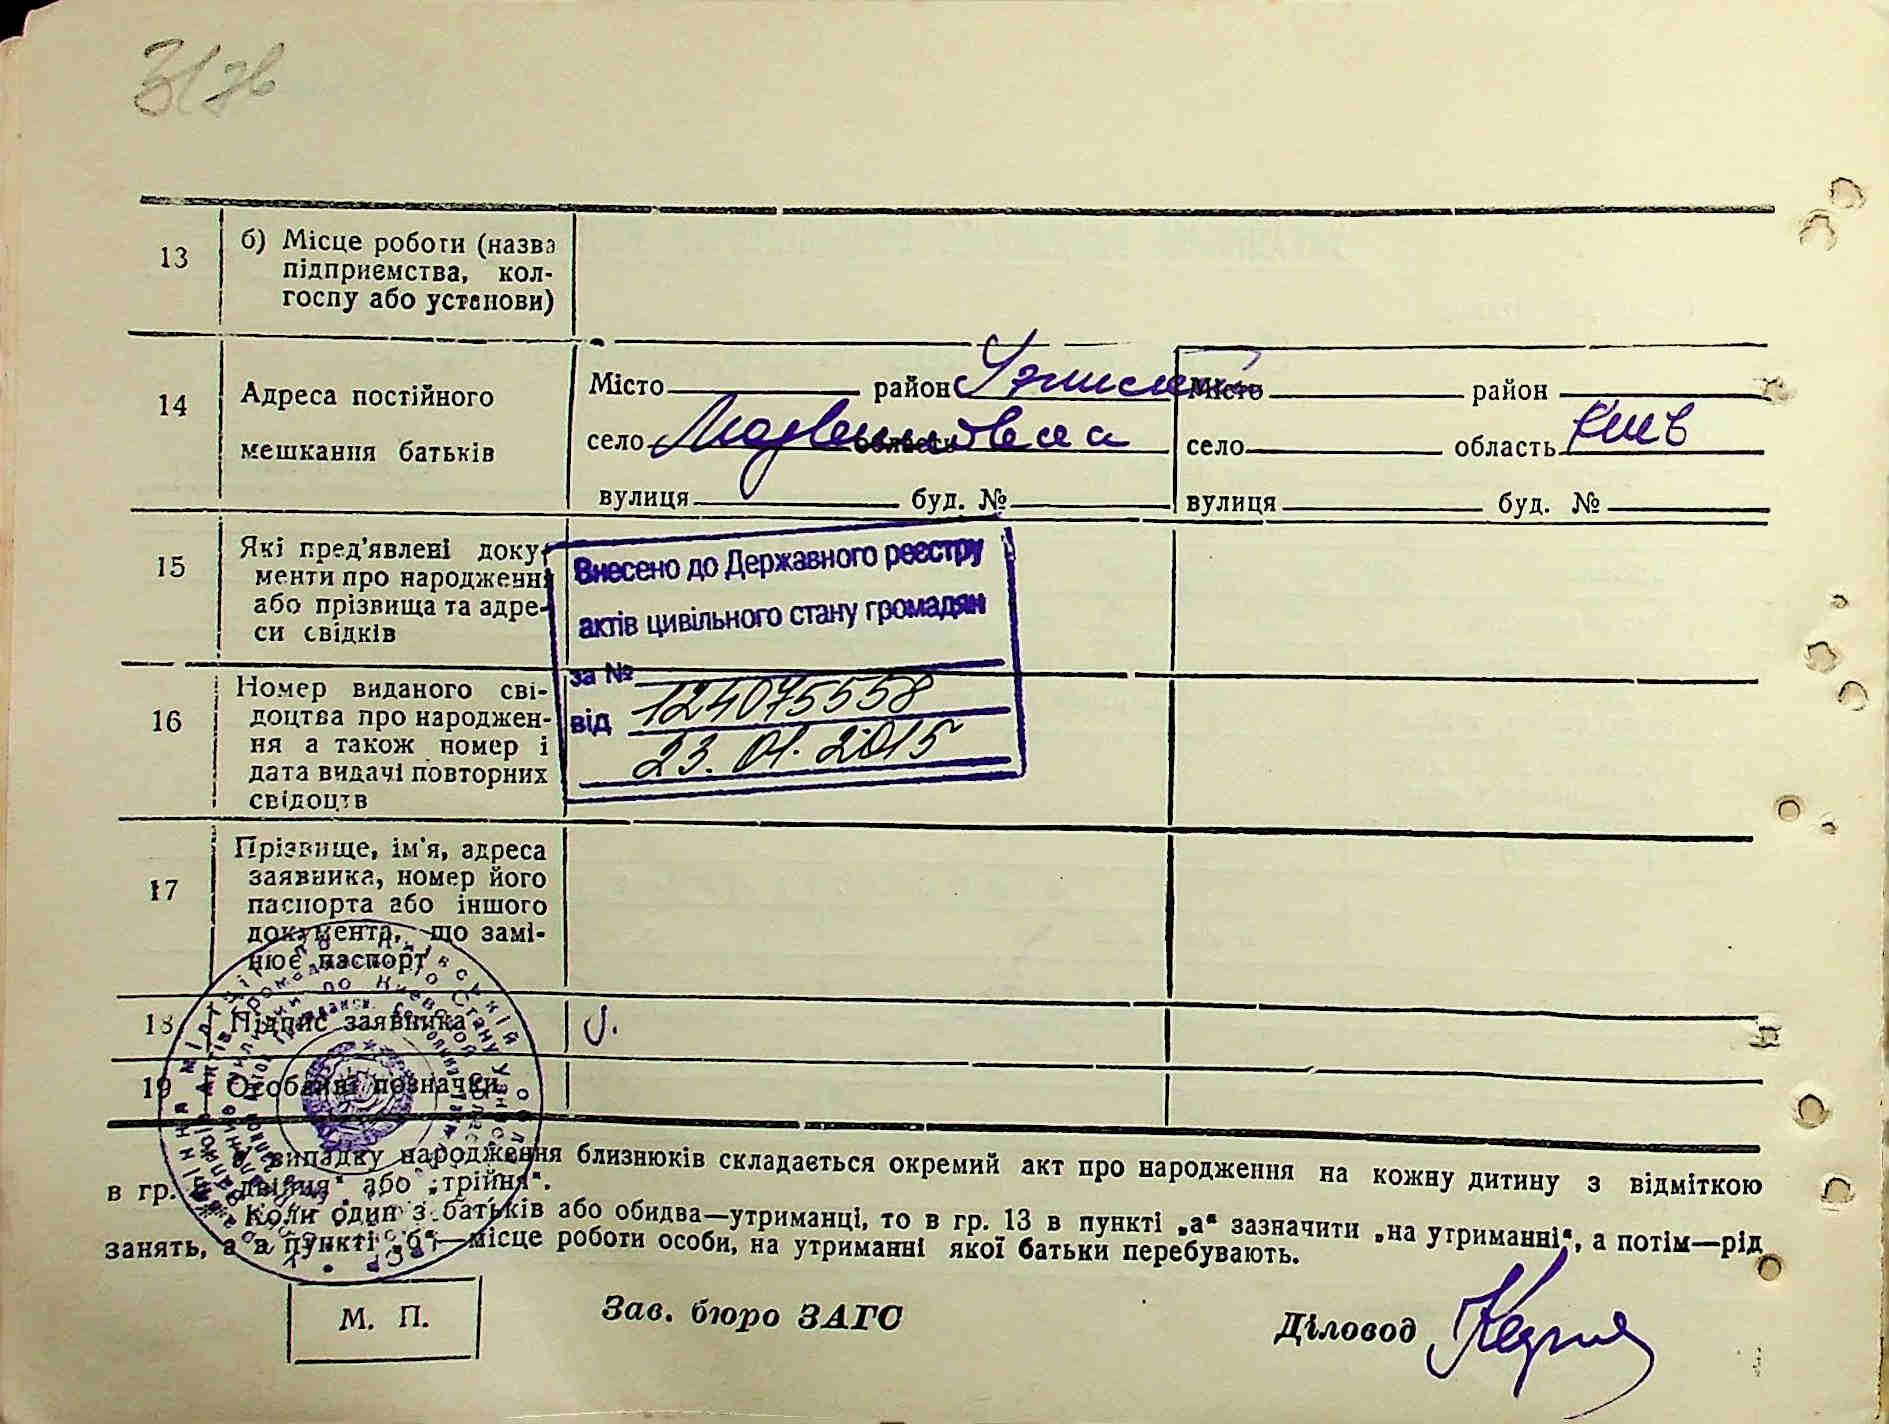 13
б) Місце роботи (назва
підприємства, кол-
госпу або установи)
14
Адреса постійного
мешкання батьків
Місто район Місто район
село область село область Київ
вулиця буд. № вулиця буд. №
15
Які пред'явлені доку-
менти про народження
або прізвища та адре-
си свідків
Внесено до Державного реєстру
актів цивільного стану громадян
за № 124075558
від 23.01.2015
16
Номер виданого сві-
доцтва про народжен-
ня а також номер і
дата видачі повторних
свідоцтв
17
Прізвище, ім'я, адреса
заявника, номер його
паспорта або іншого
документа, що замі-
нює паспорт
18 Підпис заявника
19 Особливі позначки
У випадку народження близнюків складається окремий акт про народження на кожну дитину з відміткою
в гр. „двійня“ або „трійня“.
Коли один з батьків або обидва—утриманці, то в гр. 13 в пункті „а“ зазначити „на утриманні“, а потім—рід
занять, а в пункті „б“—місце роботи особи, на утриманні якої батьки перебувають.
М. П.
Зав. бюро ЗАГС
Діловод